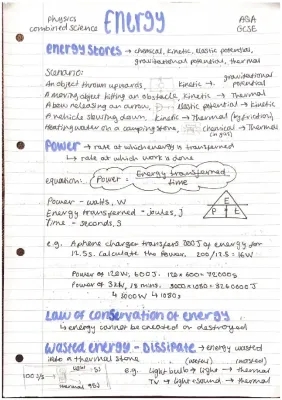 physics
combined science
Energy
AQA
GCSE
energy stores → chemical, kinetic, elastic potential,
gravitational potential, thermal
Scenario:
An object thrown upwards, kinetic → gravitational potential
A moving object hitting an obstacle, kinetic → Thermal
A bow releasing an arrow, elastic potential → kinetic
A vehicle slowing down, Kinetic → Thermal (by friction)
Heating water on a camping stove, chemical (in gas) → Thermal
Power → rate at which energy is transferred
↳ rate at which work is done
equation: Power = Energy transferred
time
Power - watts, W
Energy transferred - joules, J
Time - seconds, S
E
P t
e.g. A phone charger transfers 200J of energy for
12.5s. Calculate the Power. 200/12.5 = 16W
Law of conservation of energy
↳ energy cannot be created or destroyed
wasted energy - Dissipate → energy wasted
into a thermal store
(useful) (wasted)
100J/s
light
thermal
e.g. light bulb → light → thermal
TV → light + sound → thermal